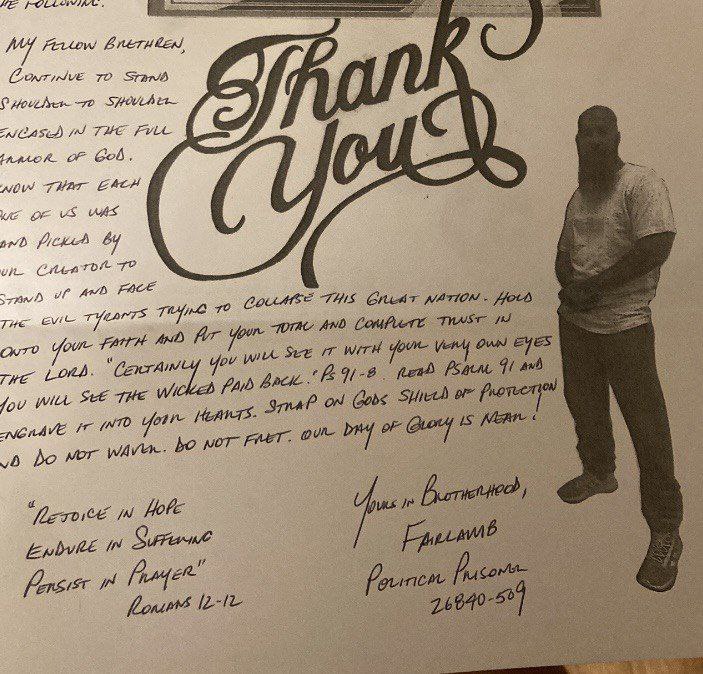 HE FOLLOWING.
Thank
You
MY FELLOW BRETHREN,
CONTINUE TO STAND
SHOULDER TO SHOULDER
ENCASED IN THE FULL
ARMOR OF GOD.
KNOW THAT EACH
ONE OF US WAS
AND PICKED BY
UR CREATOR TO
STAND UP AND FACE
THE EVIL TYRANTS TRYING TO COLLAPSE THIS GREAT NATION. HOLD
ONTO YOUR FAITH AND PUT YOUR TOTAL AND COMPLETE TRUST IN
THE LORD. "CERTAINLY YOU WILL SEE IT WITH YOUR VERY OWN EYES
YOU WILL SEE THE WICKED PAID BACK." PS 91-8. READ PSALM 91 AND
ENGRAVE IT INTO YOUR HEARTS. STRAP ON GODS SHIELD OF PROTECTION
ND DO NOT WAVER. DO NOT FRET. OUR DAY OF GLORY IS NEAR!
"REJOICE IN HOPE
ENDURE IN SUFFERING
PERSIST IN PRAYER"
ROMANS 12-12
YOURS IN BROTHERHOOD,
FAIRLAMB
POLITICAL PRISONER
26840-509